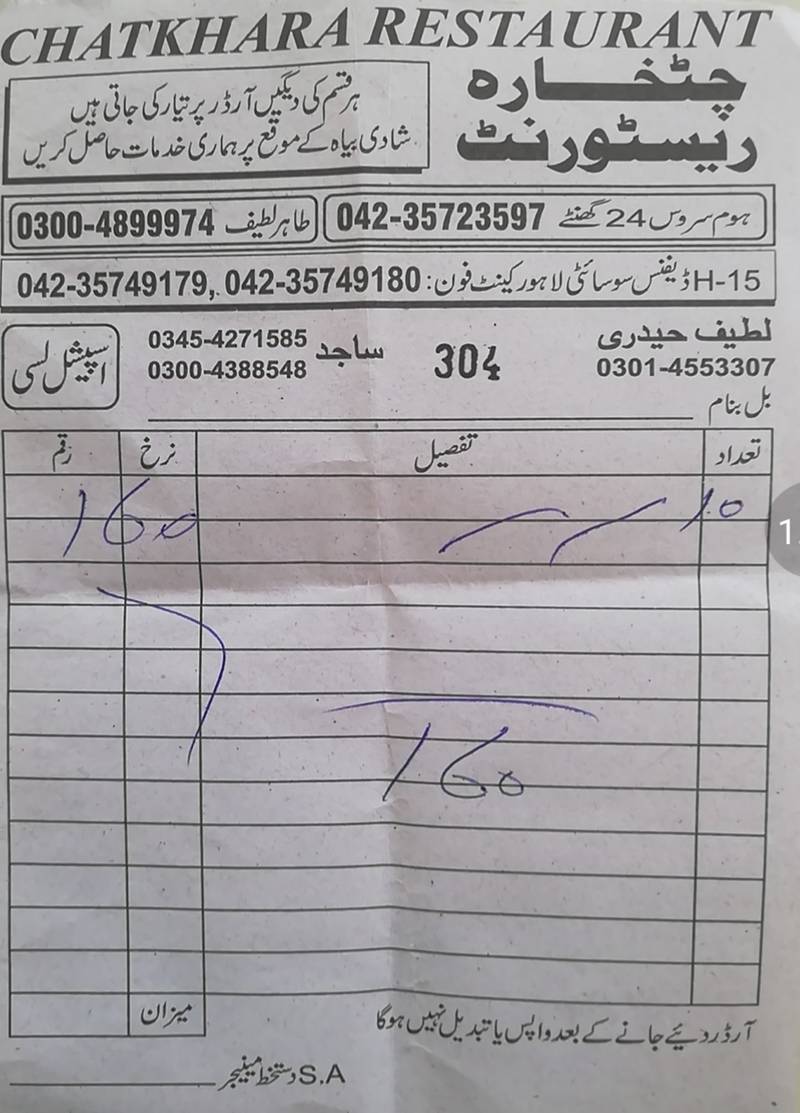 CHATKHARA RESTAURANT
چٹخارہ
ریسٹورنٹ
ہر قسم کی دیگیں آرڈر پر تیار کی جاتی ہیں
شادی بیاہ کے موقع پر ہماری خدمات حاصل کریں
ہوم سروس 24 گھنٹے 042-35723597
طاہر لطیف 0300-4899974
H-15 ڈیفنس سوسائٹی لاہور کینٹ فون: 042-35749179, 042-35749180
لطیف حیدری
0301-4553307
304
ساجد
0345-4271585
0300-4388548
اسپیشل لسی
بل بنام
تعداد تفصیل نرخ رقم
10 160
160
میزان
آرڈر دیئے جانے کے بعد واپس یا تبدیل نہیں ہوگا
S.A دستخط مینیجر